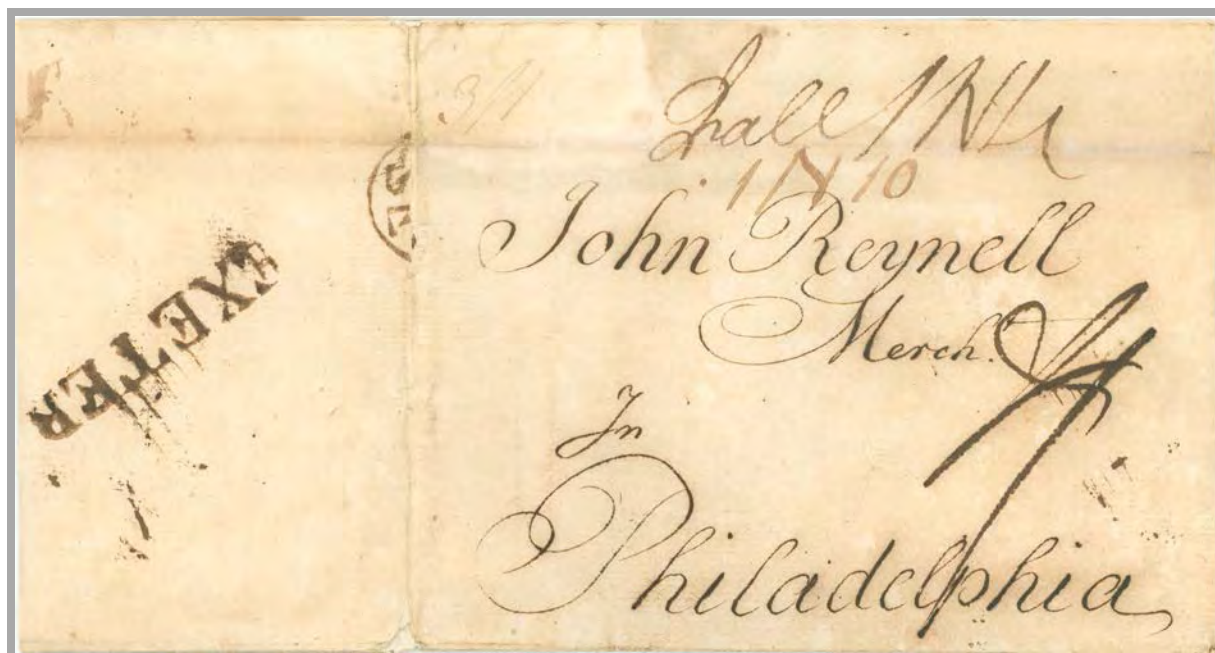 EXETER
3/4
1N10
John Reynell
Merch.t
In
Philadelphia